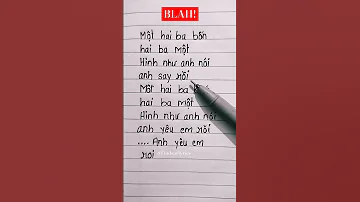 BLAH!
Một hai ba bốn
hai ba một
Hình như anh nói
anh say rồi
Một hai ba
hai ba một
Hình như anh nói
anh yêu em rồi
.... Anh yêu em
roi